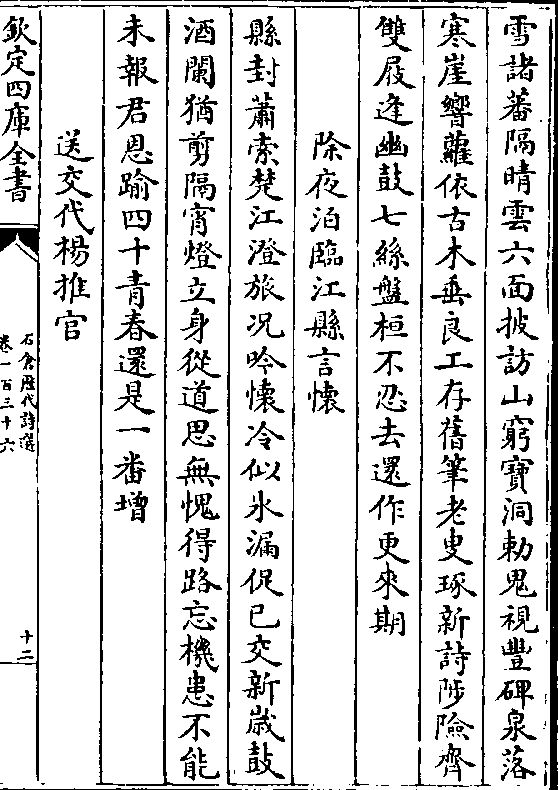 雪諸蕃隔晴雲六面披訪山窮寶洞勅鬼視豐碑泉落
寒崖響蘿依古木垂良工存舊筆老叟琢新詩陟險齊
雙屐逢幽鼓七絲盤桓不忍去還作更來期
除夜泊臨江縣言懷
縣封蕭索楚江澄旅况吟懷冷似氷漏促已交新歲鼓
酒闌猶剪隔宵燈立身從道思無愧得路忘機患不能
未報君恩踰四十青春還是一番增
送交代楊推官
欽定四庫全書
石倉歷代詩選
卷一百三十六
十二